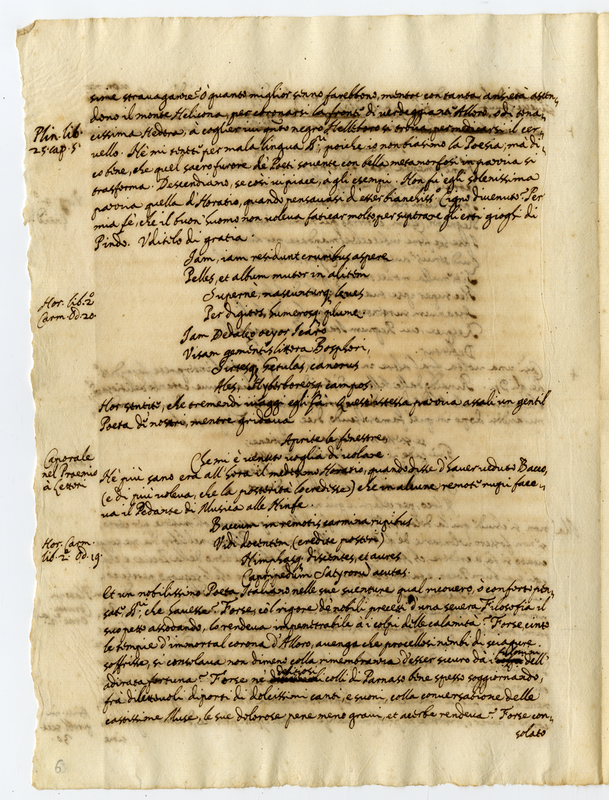 sime stravaganze? O quanto miglior senno farebbono, mentre con tanta ansietà ascen-
dono il monte Helicona, per coronarsi la fronte di verdeggiante Alloro, ò di
cissima Hedera, à coglier un negro Helleboro per medicarsi il cer-
Plin. lib.
25. cap. 5.
vello. Nè mi per mala lingua poiche io non biasimo la Poesia, mà di-
co bene, che quel sacro furore de Poeti sovente con bella metamorfosi in pazzia si
trasforma. Descendiamo, se così vi piace, à gli esempi. Non fù egli solenissima
pazzia quella d'Horatio, quando pensavasi d'esser bianchiss.º Cigno divenuto? Per
mia fè, che il buon huomo non voleva faticar molto per superare gli erti gioghi di
Pindo. Uditelo di gratia.
Jam, iam residunt cruribus asperæ
Pelles, et album mutor in alitem
Hor. lib. 2º
Carm. Od. 20.
Supernè, nascunturq; leves
Per digitos, humerosq; plumæ.
Jam Dedaleo ocyor Icaro
Visam gementis littora Bosphori,
Sirtesq; Getulas, canorus
Ales, Hyperboreosq; campos.
Hor sentite, che tremendi viaggi egli fà. Quest'istessa pazzia assalì un gentil
Poeta di nostri, mentre gridava
Aprite le finestre,
Che mi è venuto voglia di volare.
Caporale
nel Proemio
à Lettori
Nè più sano era all'hora il medesimo Horatio, quando disse d'haver veduto Bacco,
(e di più voleva, che la posterità lo credesse) che in alcune remote rupi face-
va il Pedante di Musica alle Ninfe.
Bacum in remotis carmina rupibus
Hor. Carm.
lib. 2º Od. 19.
Vidi docentem (credite posteri)
Nimphasq; discentes, et aures
Capripedum Satyrorũ acutas.
Et un nobilissimo Poeta Italiano nelle sue sventure qual ricovero, ò conforto pen-
sate che havesse? Forse, col rigore de nobili precetti d'una severa Filosofia il
suo petto assodando, la rendeva impenetrabile à i colpi delle calamità? Forse cinto
le tempie d'immortal corona d'Alloro, avenga che procellosi nembi di sciagure
soffrisse, si consolava non dimeno colla rimembranza d'esser sicuro da i fulmini dell'
adirata fortuna? Forse ne dilettosi colli di Parnaso bene spesso soggiornando,
frà dilettevoli diporti di dolcissimi canti, e suoni, colla conversatione delle
castissime Muse, le sue dolorose pene meno gravi, et acerbe rendeva? Forse con-
solato
6